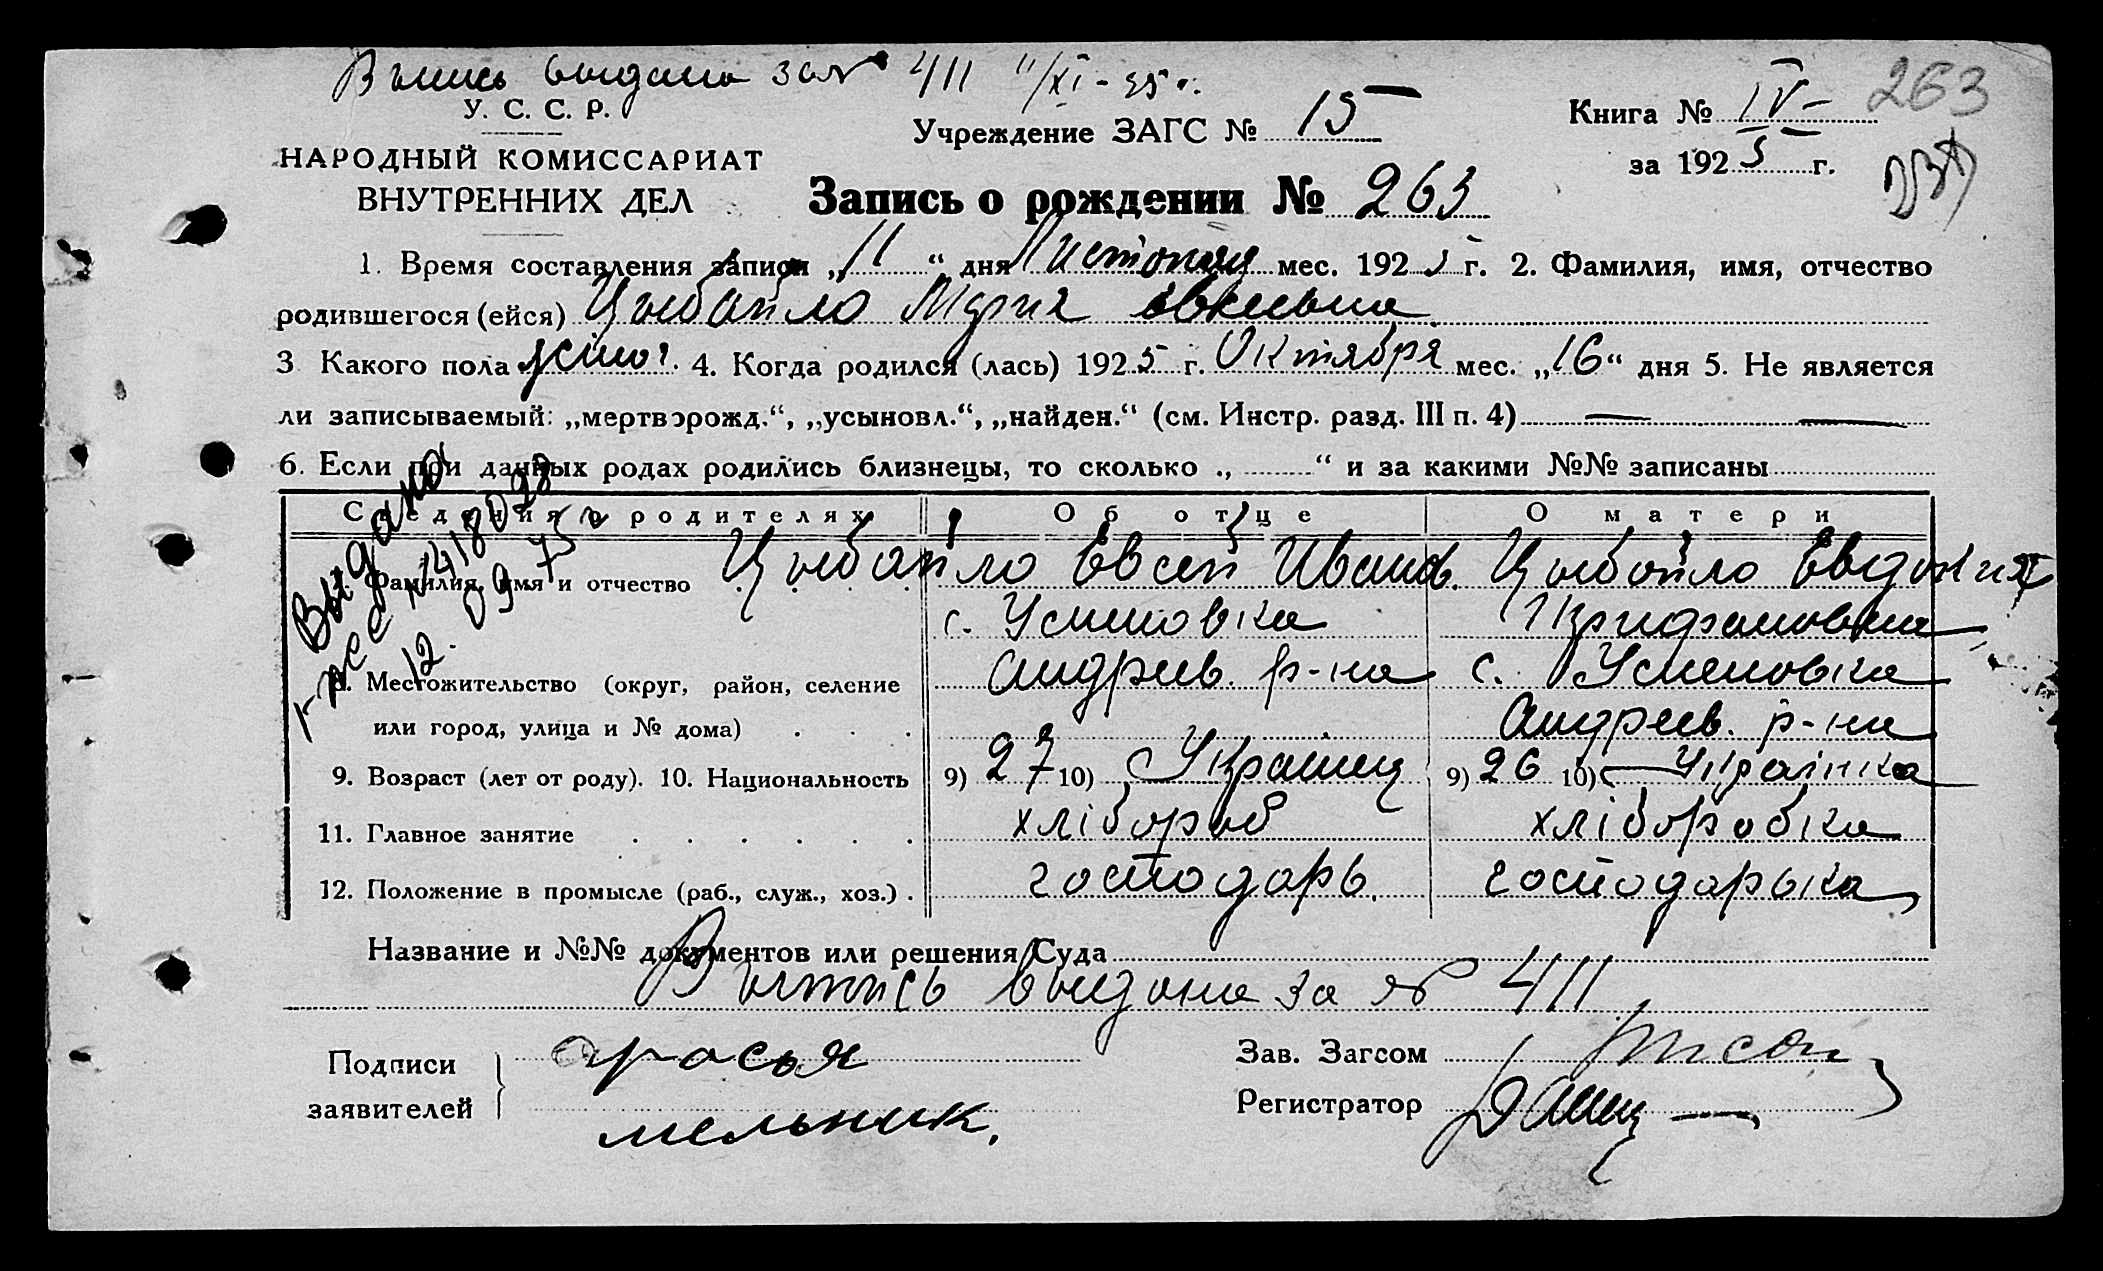 Выпись выдана за № 411 11/XI-25 г.
У. С. С. Р.
НАРОДНЫЙ КОМИССАРИАТ
ВНУТРЕННИХ ДЕЛ
Учреждение ЗАГС № 15
Книга № IV 263
за 1925 г.
Запись о рождении № 263
1. Время составления записи „11“ дня Листопаду мес. 1925 г. 2. Фамилия, имя, отчество
родившегося (ейся) Цыбайло Мария
3 Какого пола 4. Когда родился (лась) 1925 г. Октября мес. „16“ дня 5. Не является
ли записываемый: „мертворожд.“, „усыновл.“, „найден.“ (см. Инстр. разд. III п. 4)
6. Если при данных родах родились близнецы, то сколько „ “ и за какими №№ записаны
Выдано
12. 09 75 г
Сведения о родителях Об отце О матери
Фамилия, имя и отчество Цыбайло Евсей Иванов. Цыбайло Евдокия
с. Усиновка
8. Местожительство (округ, район, селение Андреев. р-на с.
или город, улица и № дома) Андреев. р-на
9. Возраст (лет от роду). 10. Национальность 9) 27 10) Українец 9) 26 10) Українка
11. Главное занятие хлібороб хліборобка
12. Положение в промысле (раб., служ., хоз.) господарь. господарька
Название и №№ документов или решения Суда
Выпись выдана за № 411
Подписи заявителей
мельник.
Зав. Загсом
Регистратор